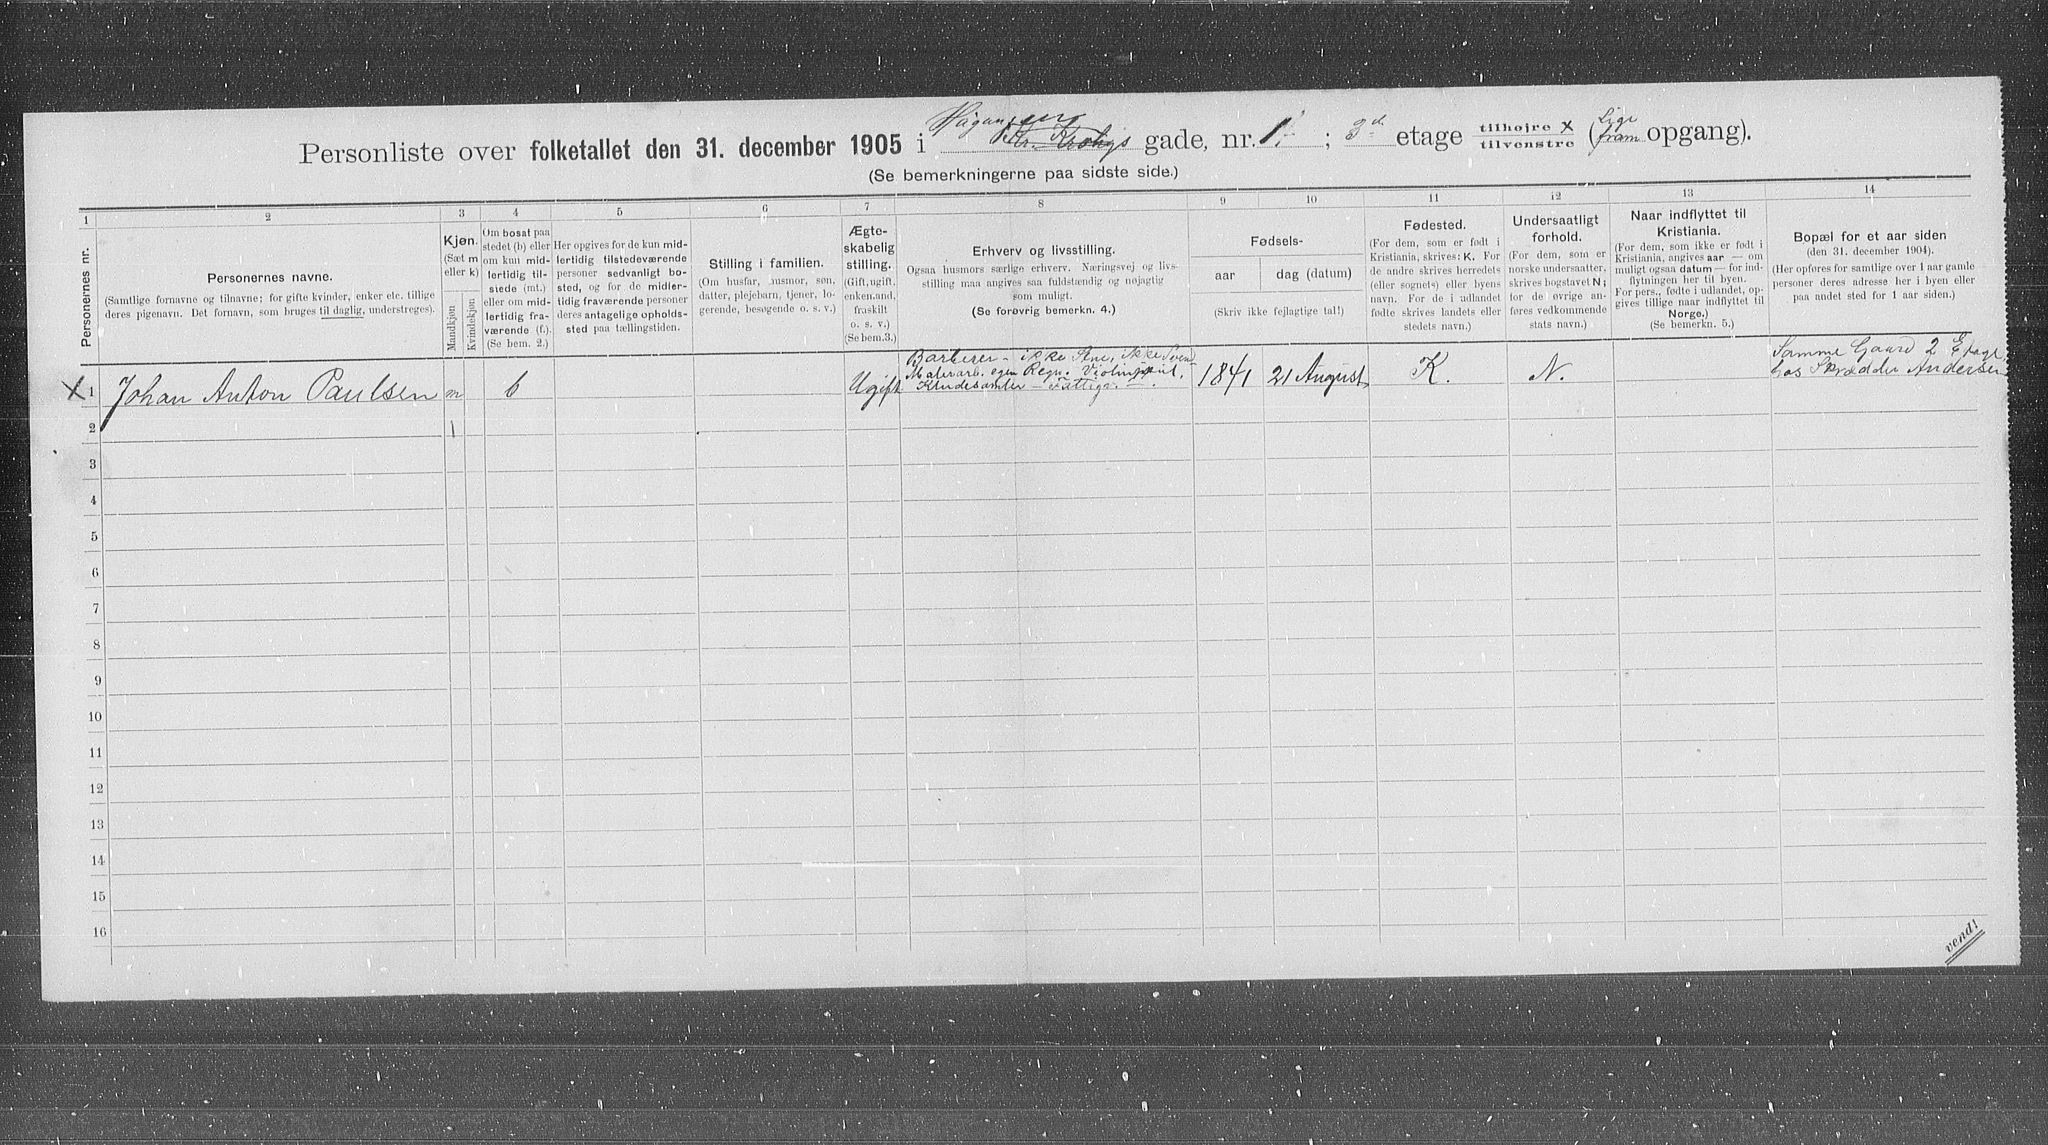 Personliste over folketallet den 31. december 1905 i Chr. Krohgs gade, nr. 1; 3d etage tilhøjre X tilvenstre (Lige fram opgang).
(Se bemerkningerne paa sidste side.)
1 2 3 4 5 6 7 8 9 10 11 12 13 14
Personernes nr.
Personernes navne.
(Samtlige fornavne og tilnavne; for gifte kvinder, enker etc. tillige
deres pigenavn. Det fornavn, som bruges til daglig, understreges).
Kjøn.
(Sæt m
eller k)
Mandkjøn
Kvindekjøn
Om bosat paa
stedet (b) eller
om kun mid-
lertidig til-
stede (mt.)
eller om mid-
lertidig fra-
værende (f.).
(Se bem. 2.)
Her opgives for de kun mid-
lertidig tilstedeværende
personer sedvanligt bo-
sted, og for de midler-
tidig fraværende personer
deres antagelige opholds-
sted paa tællingstiden.
Stilling i familien.
(Om husfar, husmor, søn,
datter, plejebarn, tjener, lo-
gerende, besøgende o. s. v.)
Ægte-
skabelig
stilling.
(Gift, ugift,
enkem.and,
fraskilt
o. s. v.)
(Se bem.3.)
Erhverv og livsstilling.
Ogsaa husmors særlige erhverv. Næringsvej og livs-
stilling maa angives saa fuldstændig og nøjagtig
som muligt.
(Se forøvrig bemerkn. 4.)
Fødsels-
aar
dag (datum)
(Skriv ikke fejlagtige tal!)
Fødested.
(For dem, som er født i
Kristiania, skrives: K. For
de andre skrives herredets
(eller sognets) eller byens
navn. For de i udlandet
fødte skrives landets eller
stedets navn.)
Undersaatligt
forhold.
(For dem, som er
norske undersaatter,
skrives bogstavet N;
for de øvrige an-
føres vedkommende
stats navn.)
Naar indflyttet til
Kristiania.
(For dem, som ikke er født i
Kristiania, angives aar — om
muligt ogsaa datum — for ind-
flytningen her til byen.
For pers., fødte i udlandet, op-
gives tillige naar indflyttet til
Norge.)
(Se bemerkn. 5.)
Bopæl for et aar siden
(den 31. december 1904).
(Her opføres for samtlige over 1 aar gamle
personer deres adresse her i byen eller
paa andet sted for 1 aar siden.)
X 1 Johan Anton Paulsen m b Ugift
Barberer – ikke
Malerarb. egen Regn.
Kludesamler – Fattig
1841 21 August K. N.
Samme Gaard 2 Etage
hos Skrædder Andersen
2 1
3
4
5
6
7
8
9
10
11
12
13
14
15
16
vend!